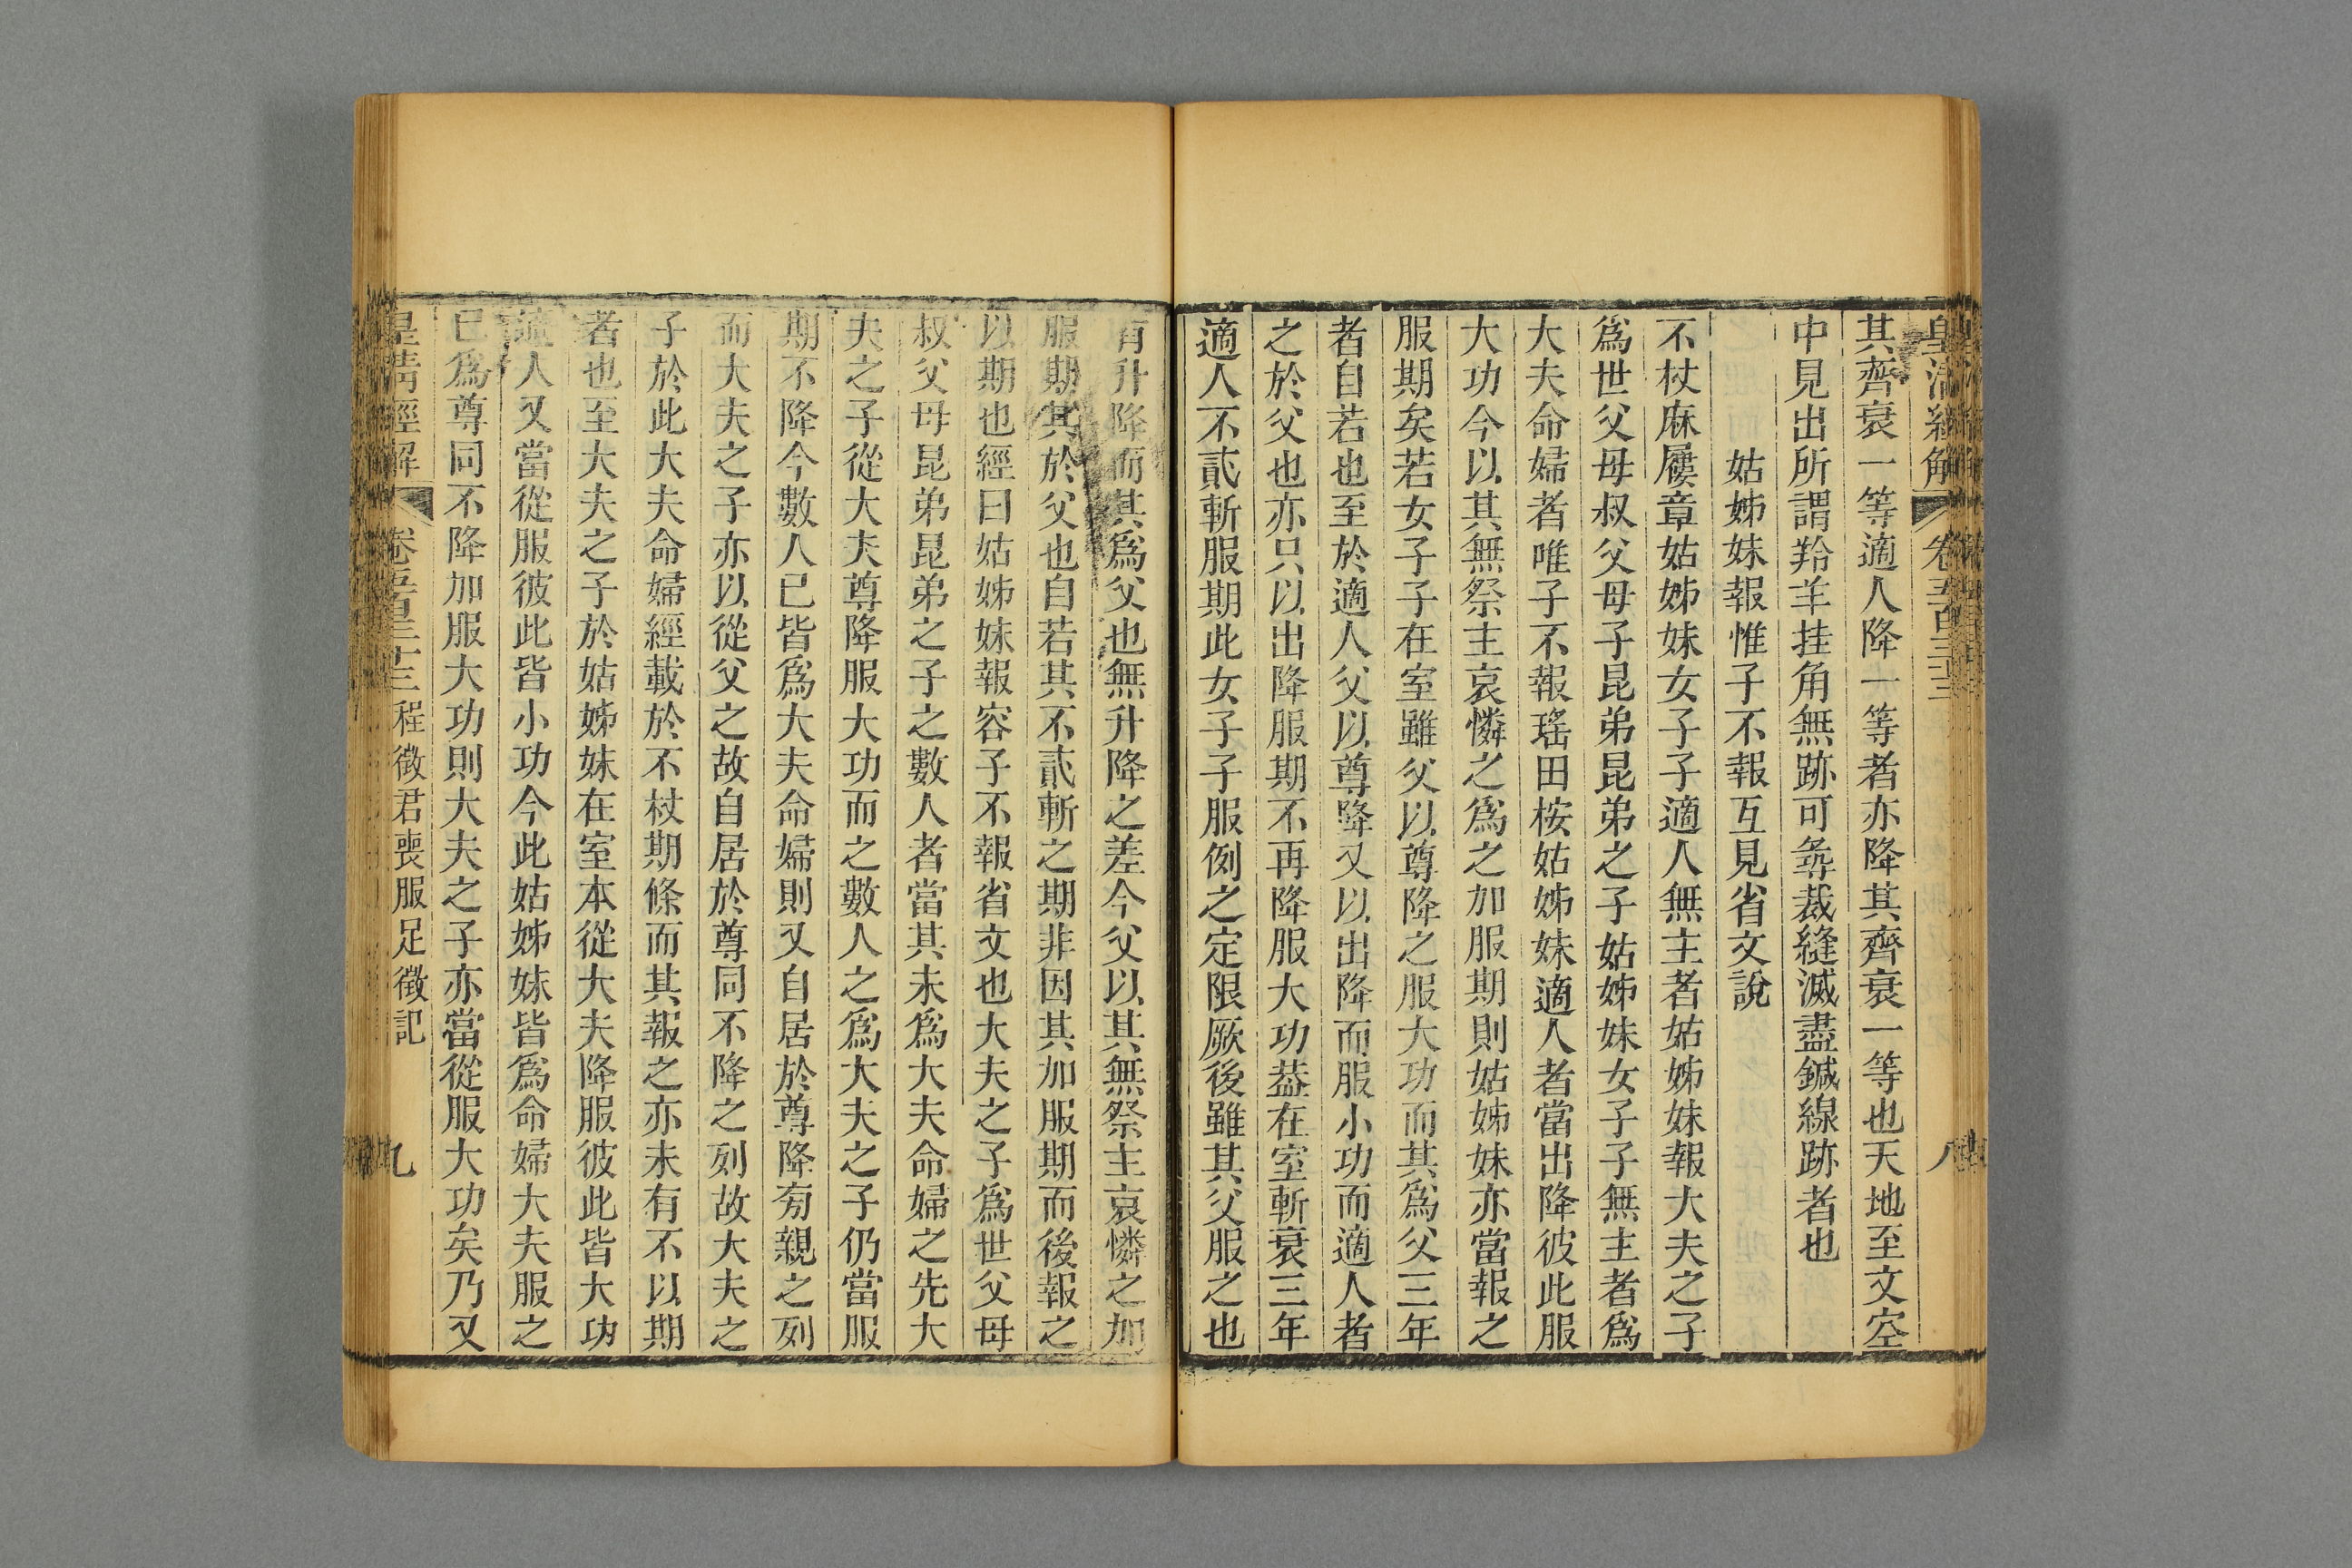 皇清經解 卷五百三十三 八
其齊衰一等適人降一等者亦降其齊衰一等也天地至文空
中見出所謂羚羊挂角無跡可尋裁縫滅盡鍼線跡者也
姑姊妹報惟子不報互見省文說
不杖麻屨章姑姊妹女子子適人無主者姑姊妹報大夫之子
爲世父母叔父母子昆弟昆弟之子姑姊妹女子子無主者爲
大夫命婦者唯子不報瑤田桉姑姊妹適人者當出降彼此服
大功今以其無祭主哀憐之爲之加服期則姑姊妹亦當報之
服期矣若女子子在室雖父以尊降之服大功而其爲父三年
者自若也至於適人父以尊降又以出降而服小功而適人者
之於父也亦只以出降服期不再降服大功葢在室斬衰三年
適人不貳斬服期此女子子服例之定限厥後雖其父服之也
有升降而其爲父也無升降之差今父以其無祭主哀憐之加
服期其於父也自若其不貳斬之期非因其加服期而後報之
以期也經曰姑姊妹報容子不報省文也大夫之子爲世父母
叔父母昆弟昆弟之子之數人者當其未爲大夫命婦之先大
夫之子從大夫尊降服大功而之數人之爲大夫之子仍當服
期不降今數人已皆爲大夫命婦則又自居於尊降旁親之列
而大夫之子亦以從父之故自居於尊同不降之列故大夫之
子於此大夫命婦經載於不杖期條而其報之亦未有不以期
者也至大夫之子於姑姊妹在室本從大夫降服彼此皆大功
適人又當從服彼此皆小功今此姑姊妹皆爲命婦大夫服之
已爲尊同不降加服大功則大夫之子亦當從服大功矣乃又
皇清經解 卷五百三十三 程徵君喪服足徵記 九